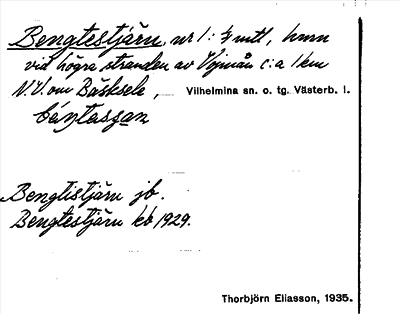 Bengtestjärn, nr 1: ¼ mtl, hmn
vid högra stranden av Vojmån c:a 1 km
N.V. om Bäsksele, Vilhelmina sn. o. tg. Västerb. l.
Bengtistjärn jb.
Bengtestjärn kb 1929.
Thorbjörn Eliasson, 1935.